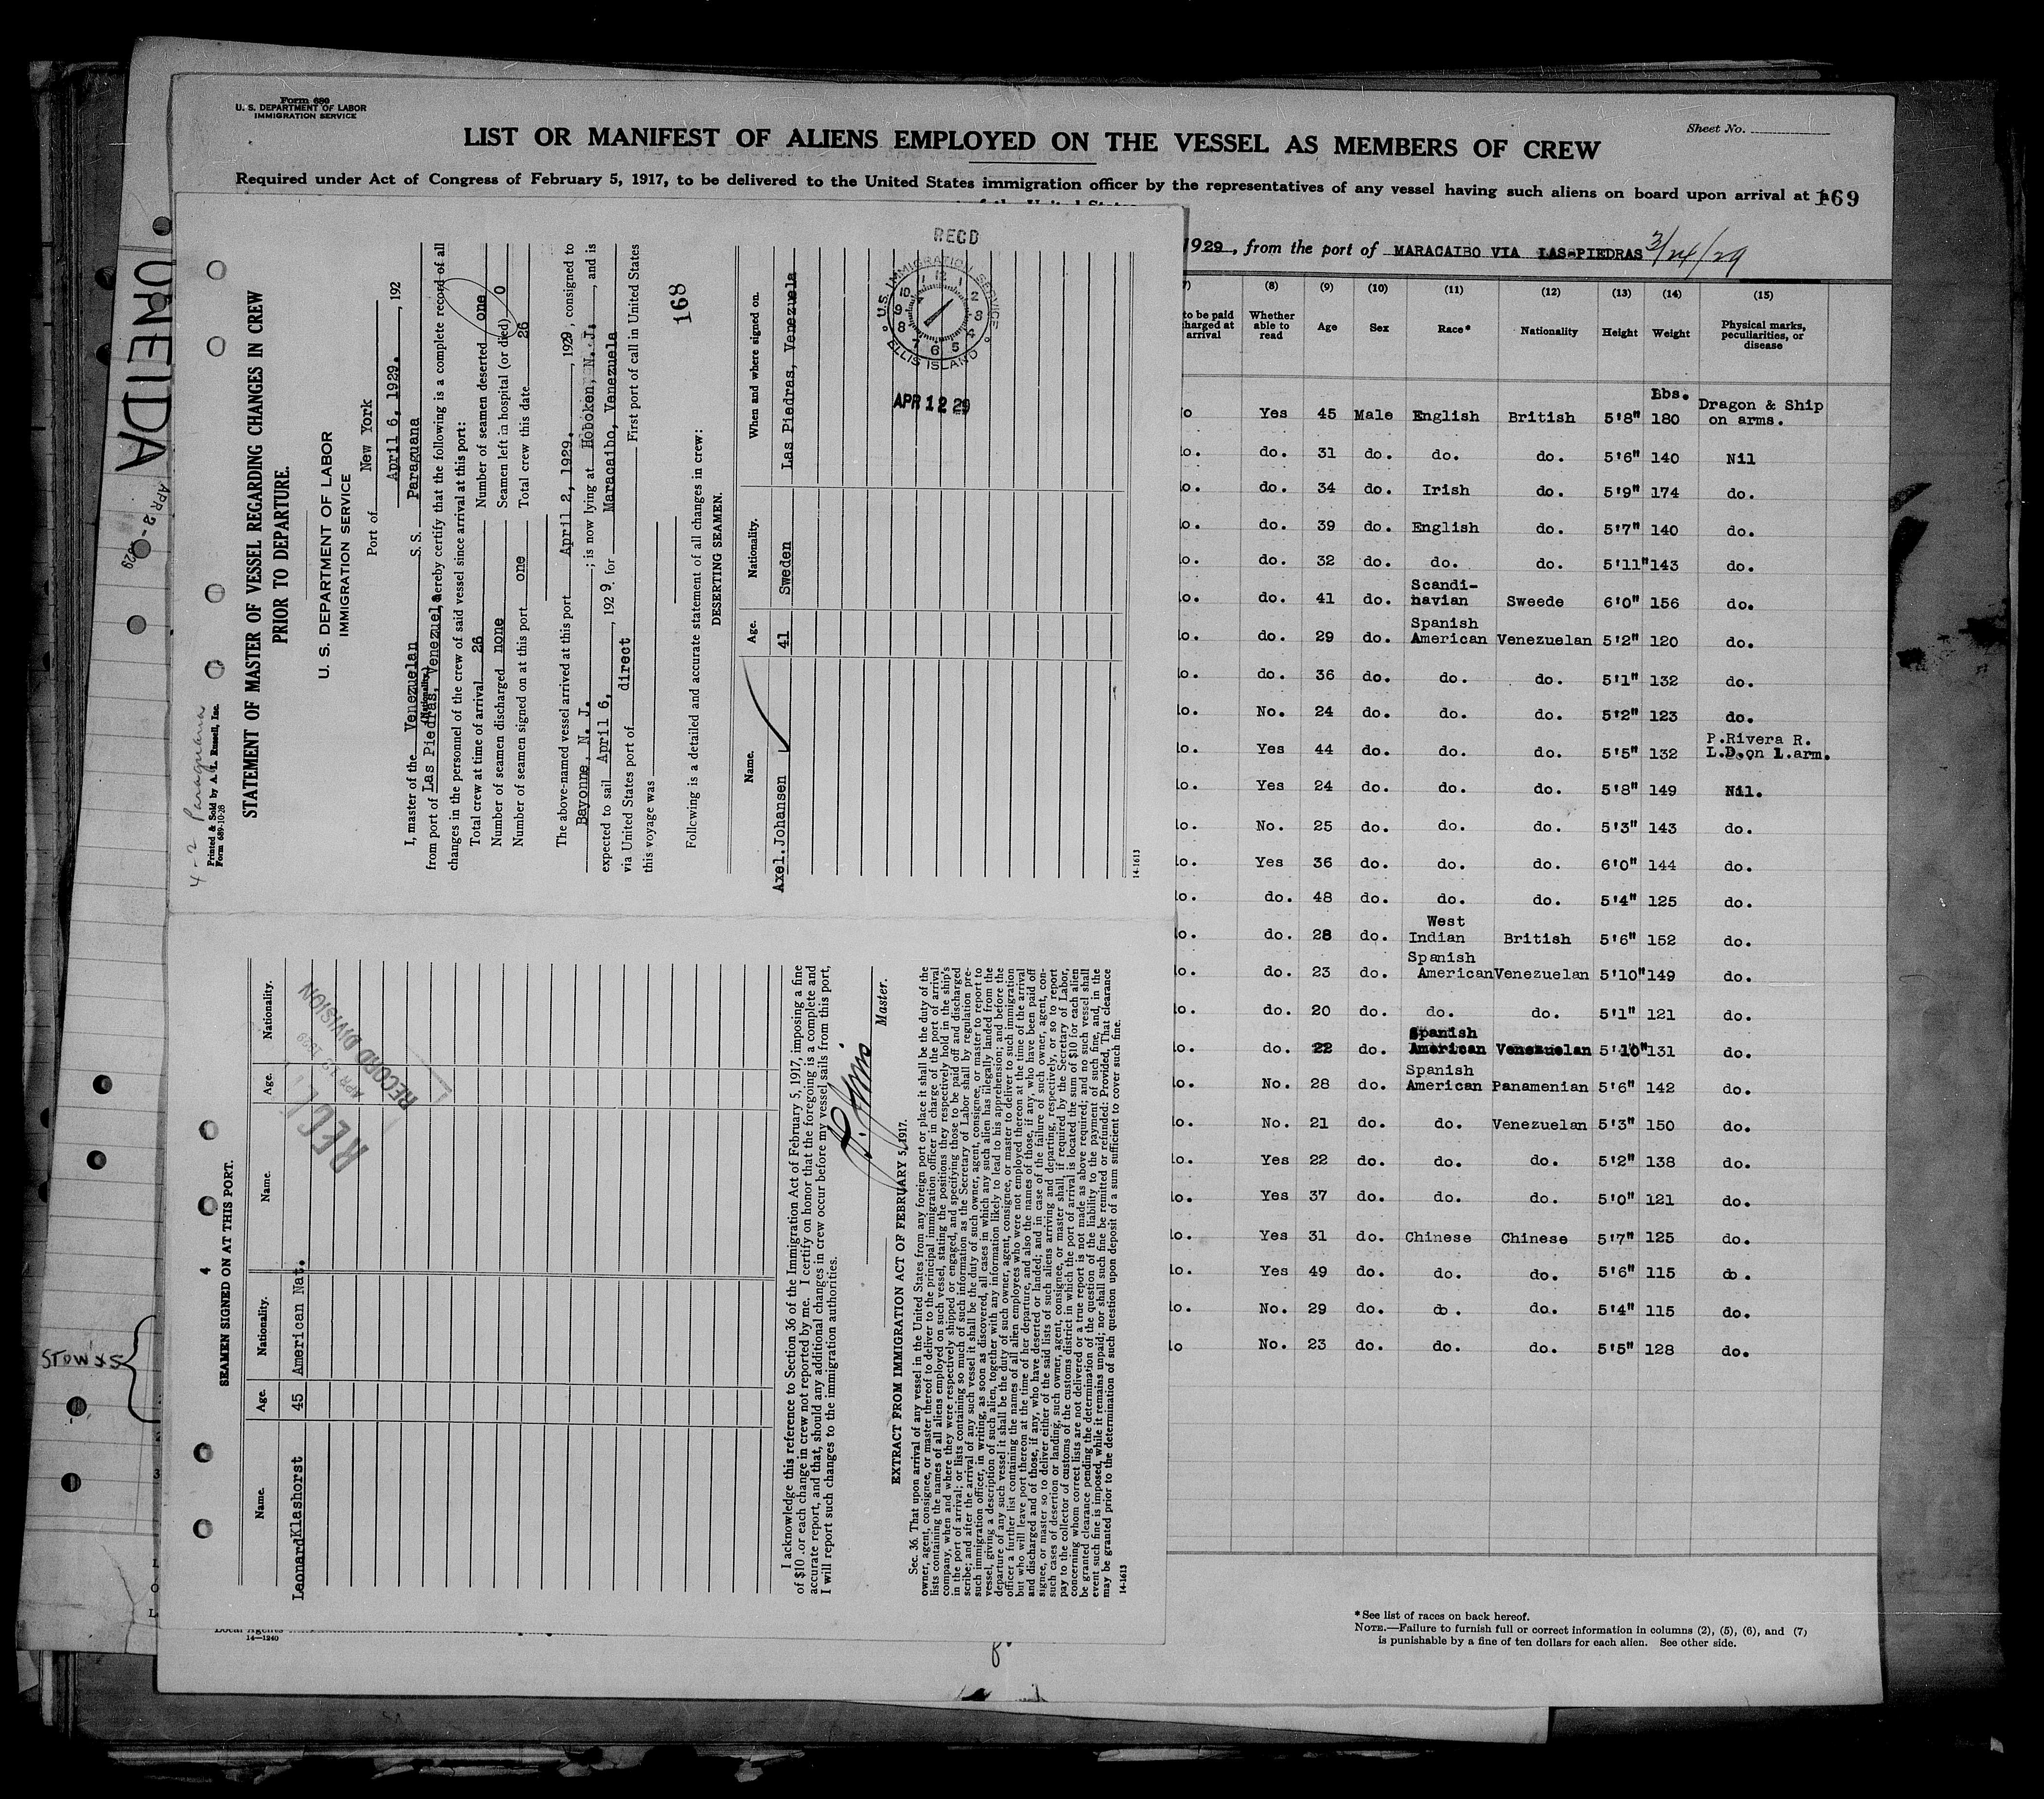 Form 680
U. S. DEPARTMENT OF LABOR
IMMIGRATION SERVICE
Sheet No.
LIST OR MANIFEST OF ALIENS EMPLOYED ON THE VESSEL AS MEMBERS OF CREW
Required under Act of Congress of February 5, 1917, to be delivered to the United States immigration officer by the representatives of any vessel having such aliens on board upon arrival at a
169
1929, from the port of MARACAIBO VIA LAS-PIEDRAS 3/24/29
(8) (9) (10) (11) (12) (13) (14) (15)
to be paid
arrival
Whether able to read Age Sex Race* Nationality Height Weight Physical marks, peculiarities, or disease
Lbs.
Yes 45 Male English British 5'8" 180 Dragon & Ship on arms.
lo. do. 31 do. do. do. 5'6" 140 Nil
lo. do. 34 do. Irish do. 5'9" 174 do.
lo. do. 39 do. English do. 5'7" 140 do.
lo. do. 32 do. do. do. 5'11" 143 do.
lo. do. 41 do. Scandi-navian Sweede 6'0" 156 do.
lo. do. 29 do. Spanish American Venezuelan 5'2" 120 do.
lo. do. 36 do. do. do. 5'1" 132 do.
lo. No. 24 do. do. do. 5'2" 123 do.
lo. Yes 44 do. do. do. 5'5" 132 P.Rivera R. L.D.on L.arm.
lo. Yes 24 do. do. do. 5'8" 149 Nil.
lo. No. 25 do. do. do. 5'3" 143 do.
lo. Yes 36 do. do. do. 6'0" 144 do.
lo. do. 48 do. do. do. 5'4" 125 do.
lo. do. 28 do. West Indian British 5'6" 152 do.
lo. do. 23 do. Spanish American Venezuelan 5'10" 149 do.
lo. do. 20 do. do. do. 5'1" 121 do.
lo. do. 22 do. Spanish American Venezuelan 5'10" 131 do.
lo. No. 28 do. Spanish American Panamenian 5'6" 142 do.
lo. No. 21 do. do. Venezuelan 5'3" 150 do.
lo. Yes 22 do. do. do. 5'2" 138 do.
lo. Yes 37 do. do. do. 5'0" 121 do.
lo. Yes 31 do. Chinese Chinese 5'7" 125 do.
lo. Yes 49 do. do. do. 5'6" 115 do.
lo. No. 29 do. do. do. 5'4" 115 do.
lo No. 23 do. do. do. 5'5" 128 do.
*See list of races on back hereof.
NOTE.—Failure to furnish full or correct information in columns (2), (5), (6), and (7)
is punishable by a fine of ten dollars for each alien. See other side.
14—1240
4-2 Paraguana
Printed & Sold by A. L. Russell, Inc.
Form 689-10-28
STATEMENT OF MASTER OF VESSEL REGARDING CHANGES IN CREW
PRIOR TO DEPARTURE.
U. S. DEPARTMENT OF LABOR
IMMIGRATION SERVICE
Port of New York
April 6, 1929. , 192
I, master of the Venezuelan S. S. Paraguana
(Nationality.)
from port of Las Piedras, Venezuela, hereby certify that the following is a complete record of all
changes in the personnel of the crew of said vessel since arrival at this port:
Total crew at time of arrival 26 Number of seamen deserted one
Number of seamen discharged none Seamen left in hospital (or died) 0
Number of seamen signed on at this port one Total crew this date 26
The above-named vessel arrived at this port April 2, 1929. , 1929, consigned to
Bayonne, N. J. ; is now lying at Hoboken, N. J. , and is
expected to sail April 6, , 1929 for Maracaibo, Venezuela
via United States port of direct First port of call in United States
this voyage was
168
Following is a detailed and accurate statement of all changes in crew:
DESERTING SEAMEN.
Name. Age. Nationality. When and where signed on.
Axel.Johansen 41 Sweden Las Piedras, Venezuela
14-1613
RECD
U.S. IMMIGRATION SERVICE
ELLIS ISLAND
12 1 2 3 4 5 6 7 8 9 10
APR 12 29
4
SEAMEN SIGNED ON AT THIS PORT.
Name. Age. Nationality. Name. Age. Nationality.
LeonardKlashorst 45 American Nat.
RECORD DIVISION
I acknowledge this reference to Section 36 of the Immigration Act of February 5, 1917, imposing a fine
of $10 .or each change in crew not reported by me. I certify on honor that the foregoing is a complete and
accurate report, and that, should any additional changes in crew occur before my vessel sails from this port,
I will report such changes to the immigration authorities.
Master.
EXTRACT FROM IMMIGRATION ACT OF FEBRUARY 5, 1917.
Sec. 36. That upon arrival of any vessel in the United States from any foreign port or place it shall be the duty of the
owner, agent, consignee, or master thereof to deliver to the principal immigration officer in charge of the port of arrival
lists containing the names of all aliens employed on such vessel, stating the positions they respectively hold in the ship's
company, when and where they were respectively shipped or engaged, and specifying those to be paid off and discharged
in the port of arrival; or lists containing so much of such information as the Secretary of Labor shall by regulation pre-
scribe; and after the arrival of any such vessel it shall be the duty of such owner, agent, consignee, or master to report to
such immigration officer, in writing, as soon as discovered, all cases in which any such alien has illegally landed from the
vessel, giving a description of such alien, together with any information likely to lead to his apprehension; and before the
departure of any such vessel it shall be the duty of such owner, agent, consignee, or master to deliver to such immigration
officer a further list containing the names of all alien employees who were not employed thereon at the time of the arrival
but who will leave port thereon at the time of her departure, and also the names of those, if any, who have been paid off
and discharged and of those, if any, who have deserted or landed; and in case of the failure of such owner, agent, con-
signee, or master so to deliver either of the said lists of such aliens arriving and departing, respectively, or so to report
such cases of desertion or landing, such owner, agent, consignee, or master shall, if required by the Secretary of Labor,
pay to the collector of customs of the customs district in which the port of arrival is located the sum of $10 for each alien
concerning whom correct lists are not delivered or a true report is not made as above required; and no such vessel shall
be granted clearance pending the determination of the question of the liability to the payment of such fine, and, in the
event such fine is imposed, while it remains unpaid; nor shall such fine be remitted or refunded: Provided, That clearance
may be granted prior to the determination of such question upon deposit of a sum sufficient to cover such fine.
14-1613
APR 2 - 1929
STOWXS